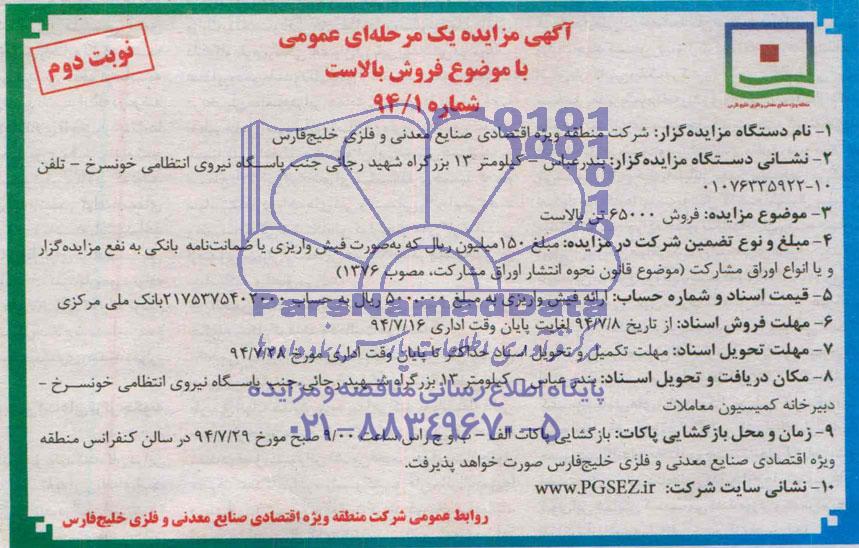 آگهی مزایده یک مرحله‌ای عمومی
با موضوع فروش بالاست
شماره ۹۴/۱
نوبت دوم
منطقه ویژه صنایع معدنی و فلزی خلیج فارس
۱- نام دستگاه مزایده‌گزار: شرکت منطقه ویژه اقتصادی صنایع معدنی و فلزی خلیج‌فارس
۲- نشانی دستگاه مزایده‌گزار: بندرعباس - کیلومتر ۱۳ بزرگراه شهید رجائی جنب پاسگاه نیروی انتظامی خونسرخ - تلفن
۱۰-۰۱۰۷۶۳۳۵۹۲۲
۳- موضوع مزایده: فروش ۶۵۰۰۰ تن بالاست
۴- مبلغ و نوع تضمین شرکت در مزایده: مبلغ ۱۵۰میلیون ریال که به‌صورت فیش واریزی یا ضمانت‌نامه بانکی به نفع مزایده‌گزار
و یا انواع اوراق مشارکت (موضوع قانون نحوه انتشار اوراق مشارکت، مصوب ۱۳۷۶)
۵- قیمت اسناد و شماره حساب: ارائه فیش واریزی به مبلغ ۵۰۰،۰۰۰ ریال به حساب ۲۱۷۵۳۷۵۴۰۲۰۰۰بانک ملی مرکزی
۶- مهلت فروش اسناد: از تاریخ ۹۴/۷/۸ لغایت پایان وقت اداری ۹۴/۷/۱۶
۷- مهلت تحویل اسناد: مهلت تکمیل و تحویل اسناد حداکثر تا پایان وقت اداری مورخ ۹۴/۷/۲۸
۸- مکان دریافت و تحویل اسناد: بندرعباس - کیلومتر ۱۳ بزرگراه شهید رجائی جنب پاسگاه نیروی انتظامی خونسرخ -
دبیرخانه کمیسیون معاملات
۹- زمان و محل بازگشایی پاکات: بازگشایی پاکات الف - ب و ج راس ساعت ۹/۰۰ صبح مورخ ۹۴/۷/۲۹ در سالن کنفرانس منطقه
ویژه اقتصادی صنایع معدنی و فلزی خلیج‌فارس صورت خواهد پذیرفت.
۱۰- نشانی سایت شرکت: www.PGSEZ.ir
روابط عمومی شرکت منطقه ویژه اقتصادی صنایع معدنی و فلزی خلیج‌فارس
ParsNamadData
پایگاه اطلاع رسانی مناقصه و مزایده
۰۲۱-۸۸۳۴۹۶۷۰-۵